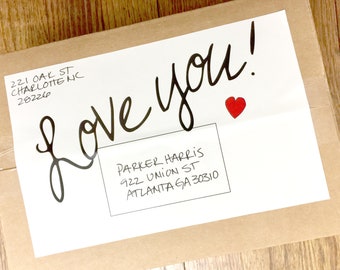 221 OAK ST
CHARLOTTE NC
28226
Love you!
PARKER HARRIS
922 UNION ST
ATLANTA GA 30310